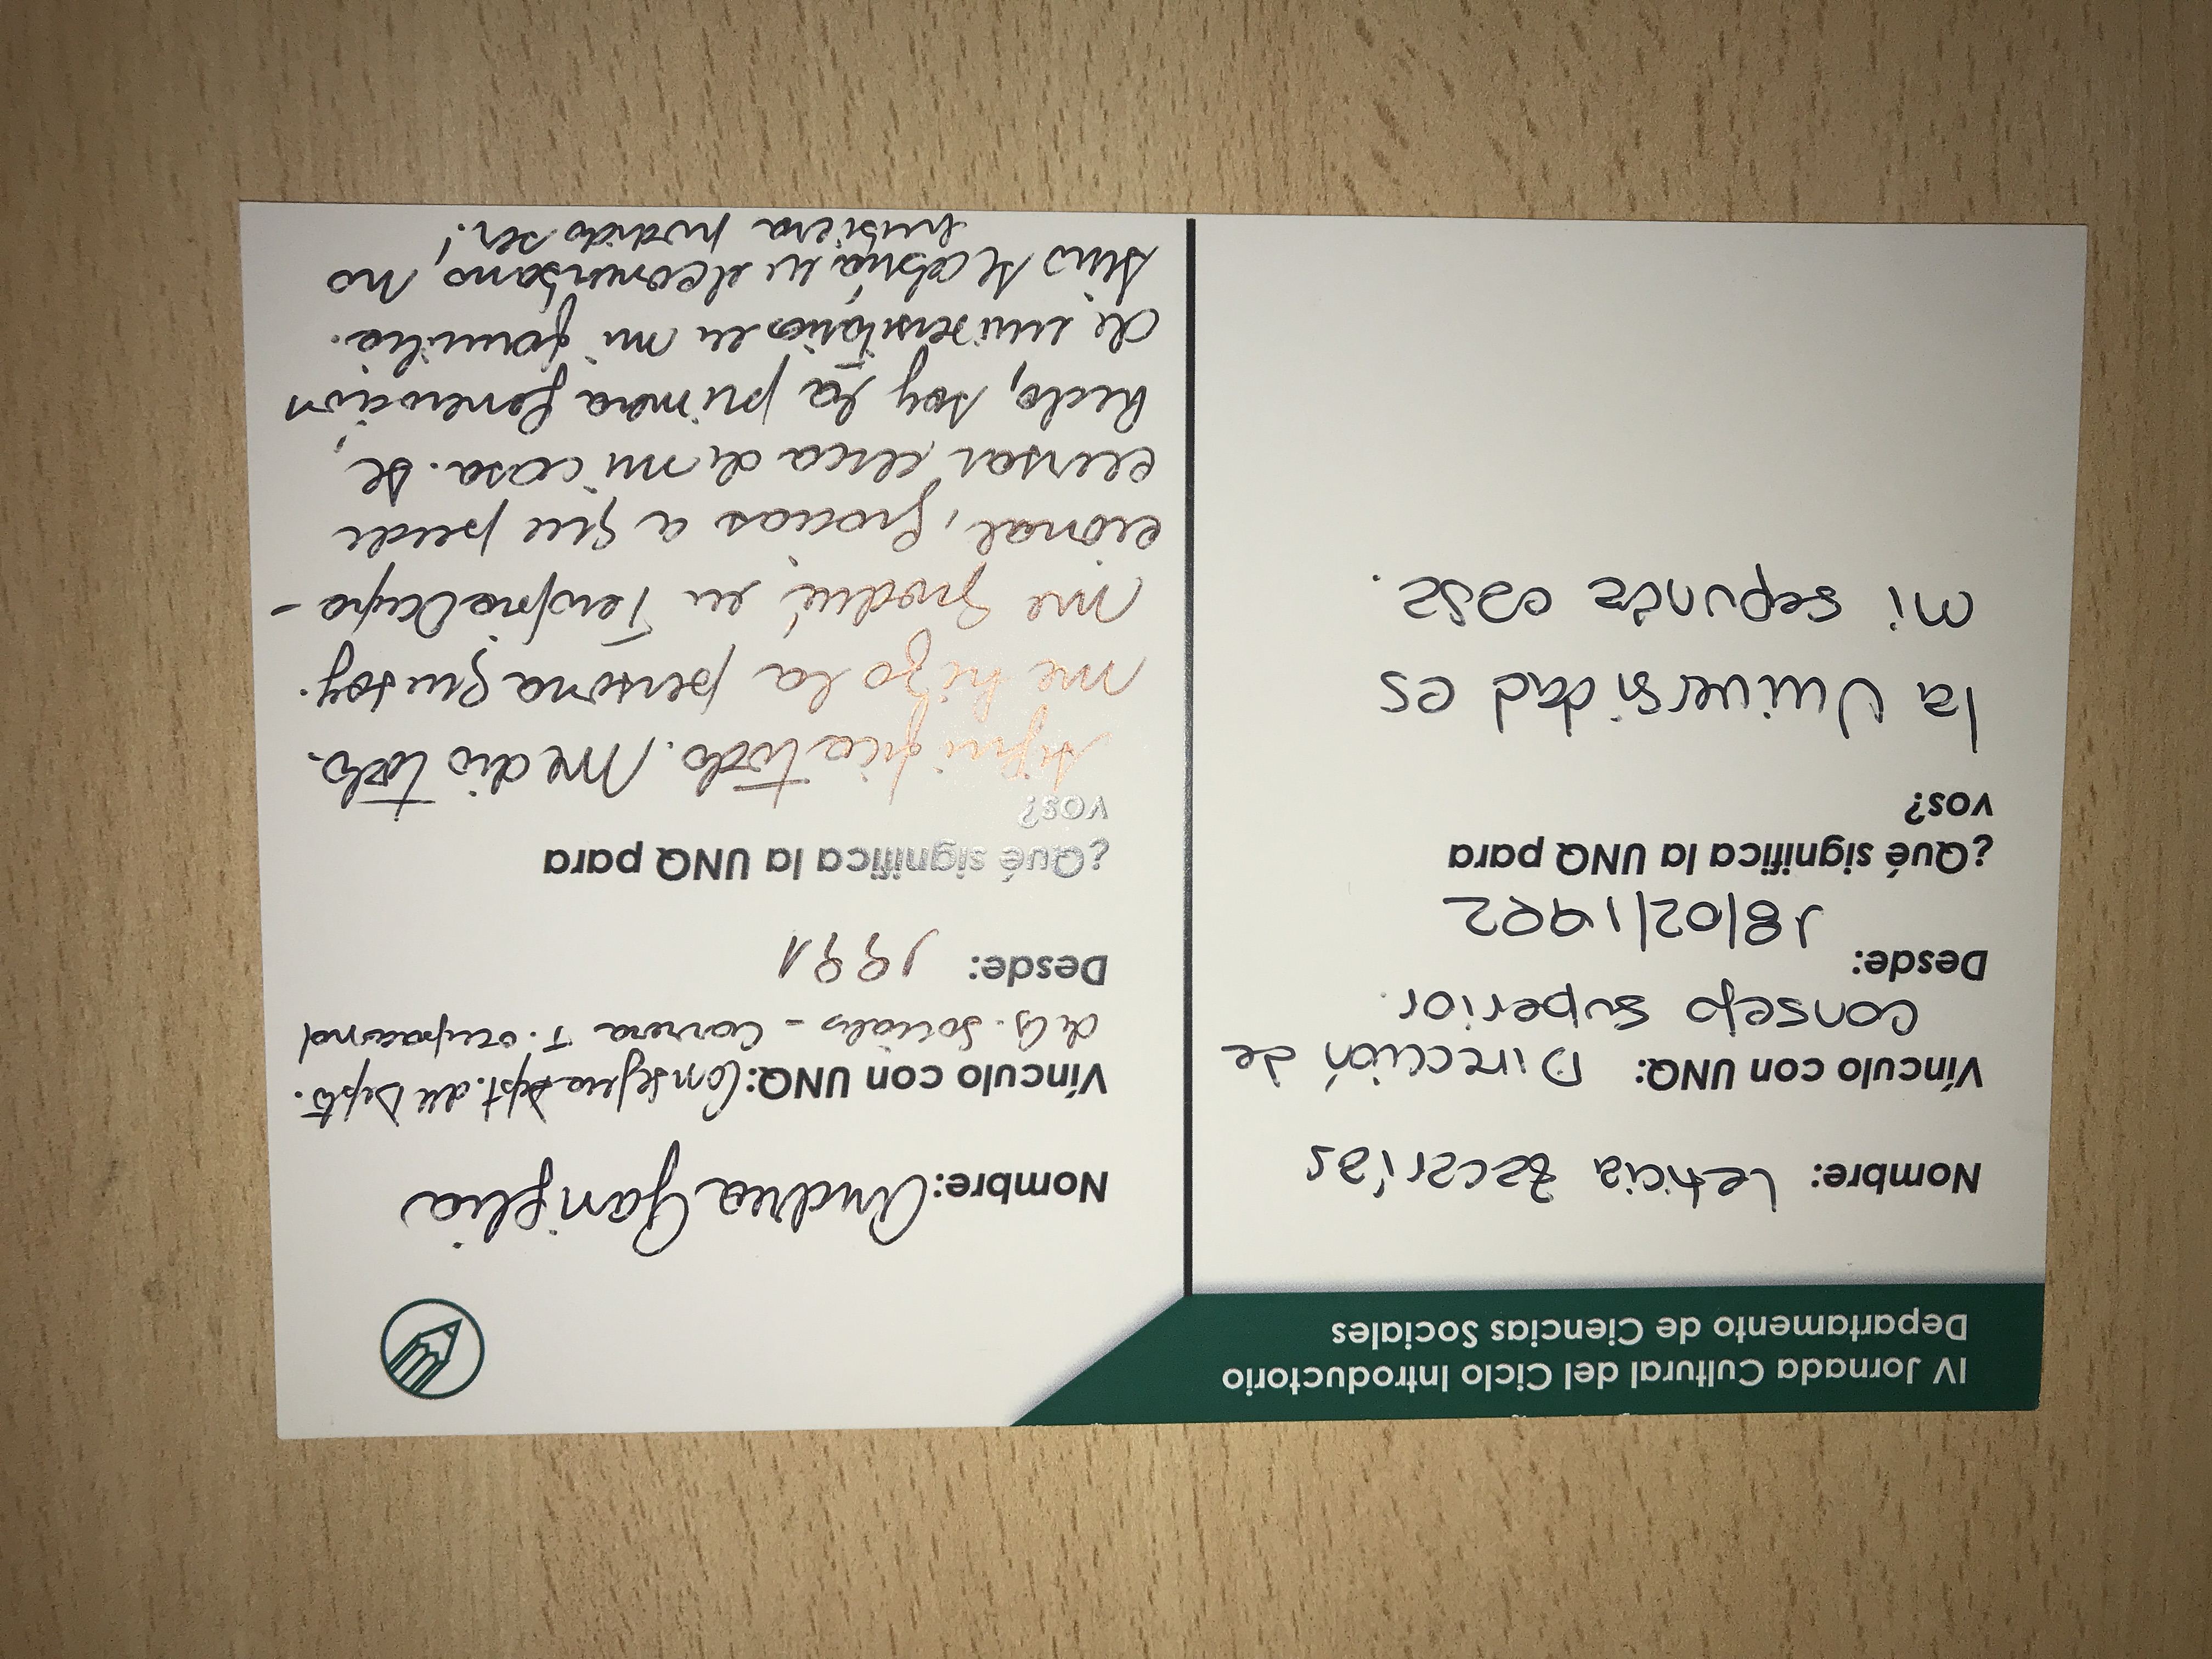 IV Jornada Cultural del Ciclo Introductorio
Departamento de Ciencias Sociales
Nombre: Leticia Zacarías
Vínculo con UNQ: Dirección de
Consejo Superior.
Desde:
18/02/1992
¿Qué significa la UNQ para
vos?
la Universidad es
mi segunda casa.
Nombre: Andrea Gaviglia
Vínculo con UNQ: Consejera dpt. del Depto.
de Cs. Sociales - Carrera T. ocupacional
Desde: 1991
¿Qué significa la UNQ para
vos?
significa todo. Me dio todo.
me hizo la persona que soy.
me gradué en Terapia Ocupa-
cional, gracias a que pude
cursar cerca de mi casa. De
hecho, soy la primera generación
de universitarios en mi familia.
Sino se abría en el conurbano, no
hubiera podido ser!